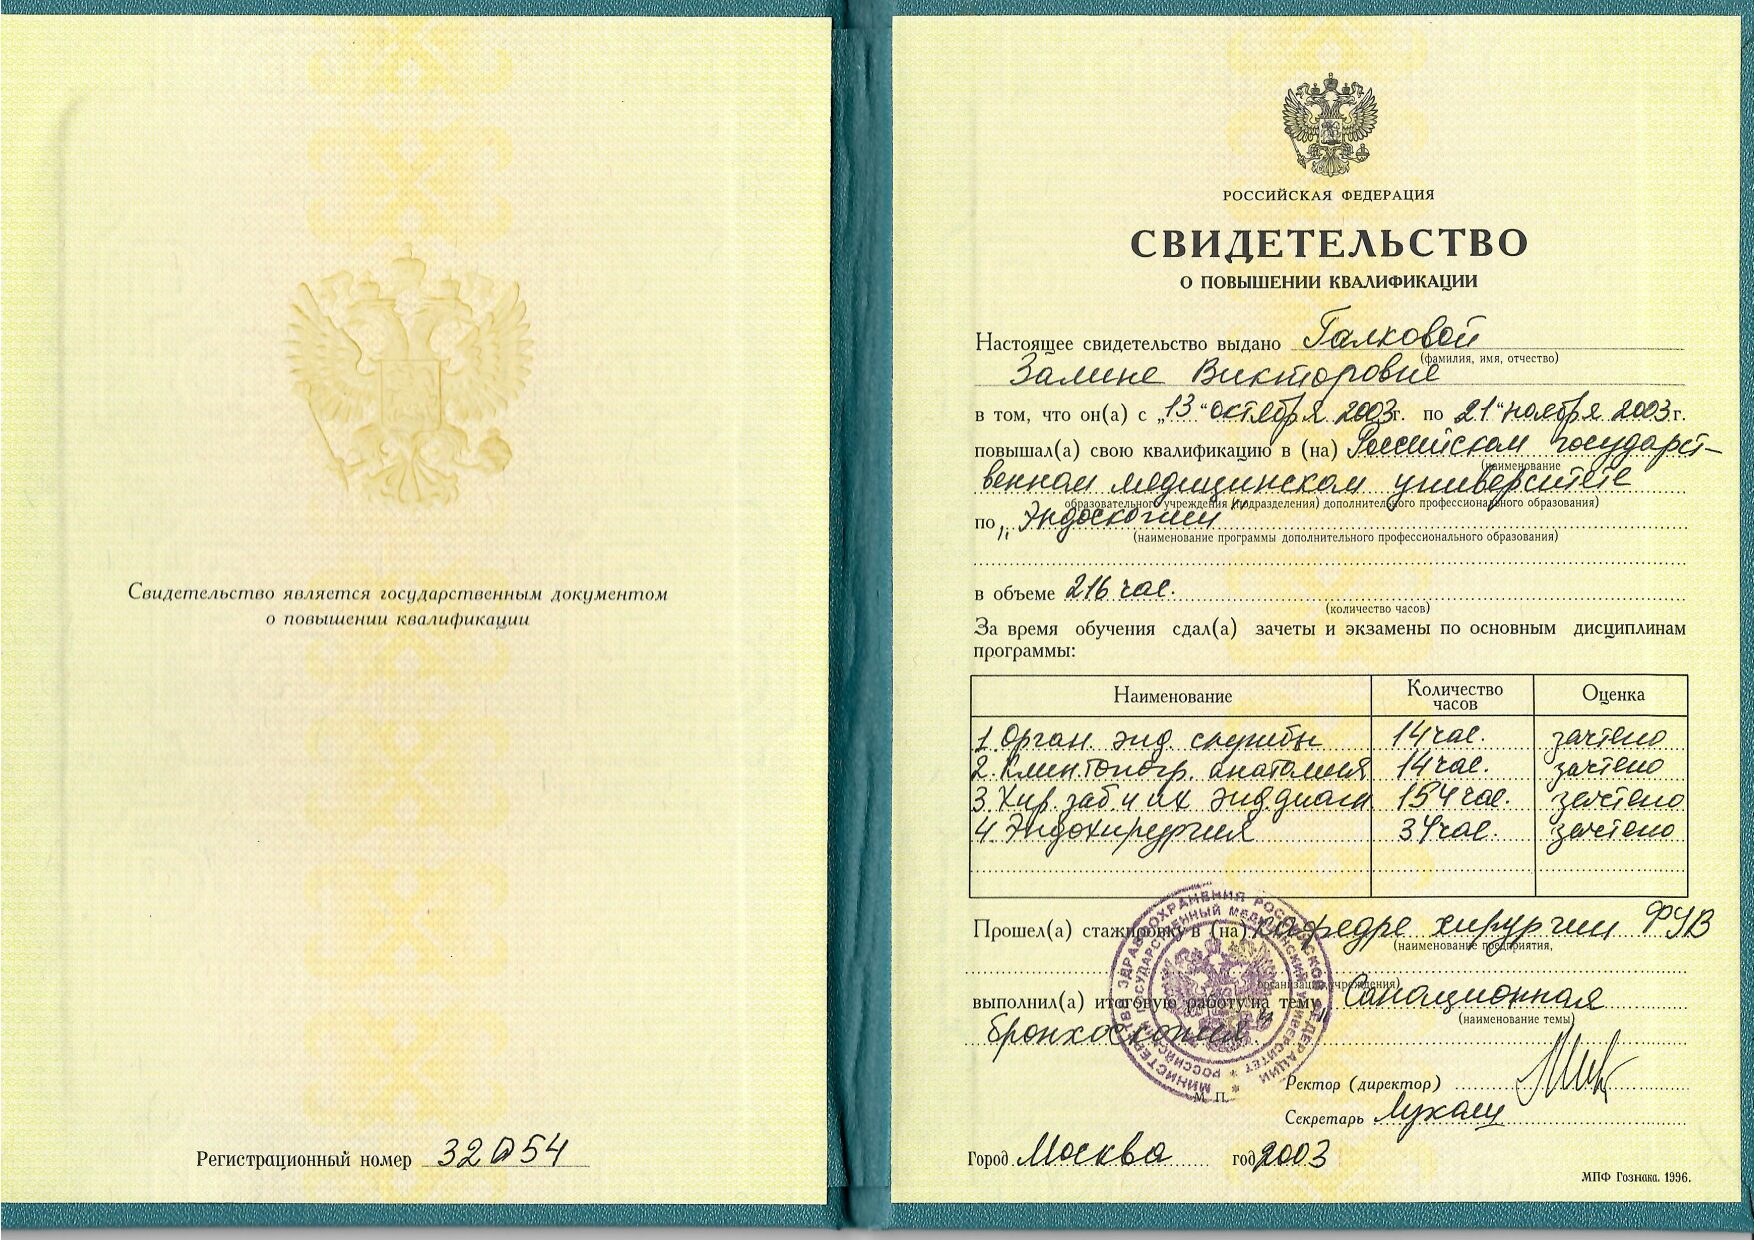 Свидетельство является государственным документом
о повышении квалификации
Регистрационный номер 32054
РОССИЙСКАЯ ФЕДЕРАЦИЯ
СВИДЕТЕЛЬСТВО
О ПОВЫШЕНИИ КВАЛИФИКАЦИИ
Настоящее свидетельство выдано Галковой
(фамилия, имя, отчество)
Залине Викторовне
в том, что он(а) с „13" октября 2003г. по 21" ноября 2003г.
повышал(а) свою квалификацию в (на) Российском государст-
(наименование
венном медицинском университете
образовательного учреждения (подразделения) дополнительного профессионального образования)
по „Эндоскопии"
(наименование программы дополнительного профессионального образования)
в объеме 216 час.
(количество часов)
За время обучения сдал(а) зачеты и экзамены по основным дисциплинам
программы:
Наименование Количество часов Оценка
1. Орган. энд. службы 14 час. зачтено
2. Клин. топогр. анатомия 14 час. зачтено
3. Хир. заб. и их энд. диагн 154 час. зачтено
4. Эндохирургия 34 час. зачтено
Прошел(а) стажировку в (на) кафедре хирургии ФУВ
(наименование предприятия,
организации, учреждения)
выполнил(а) итоговую работу на тему „Санационная
(наименование темы)
бронхоскопия"
МИНИСТЕРСТВО ЗДРАВООХРАНЕНИЯ РОССИЙСКОЙ ФЕДЕРАЦИИ *
РОССИЙСКИЙ ГОСУДАРСТВЕННЫЙ МЕДИЦИНСКИЙ УНИВЕРСИТЕТ *
М. П.
Ректор (директор)
Секретарь
Город Москва год 2003
МПФ Гознака. 1996.